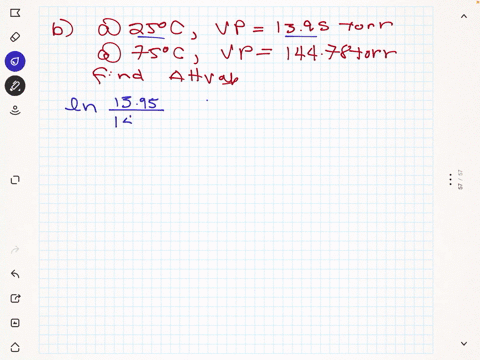 b) @ 25°C, VP = 13.95 torr
@ 75°C, VP = 144.78 torr
find ΔHvap
ln 13.95
14